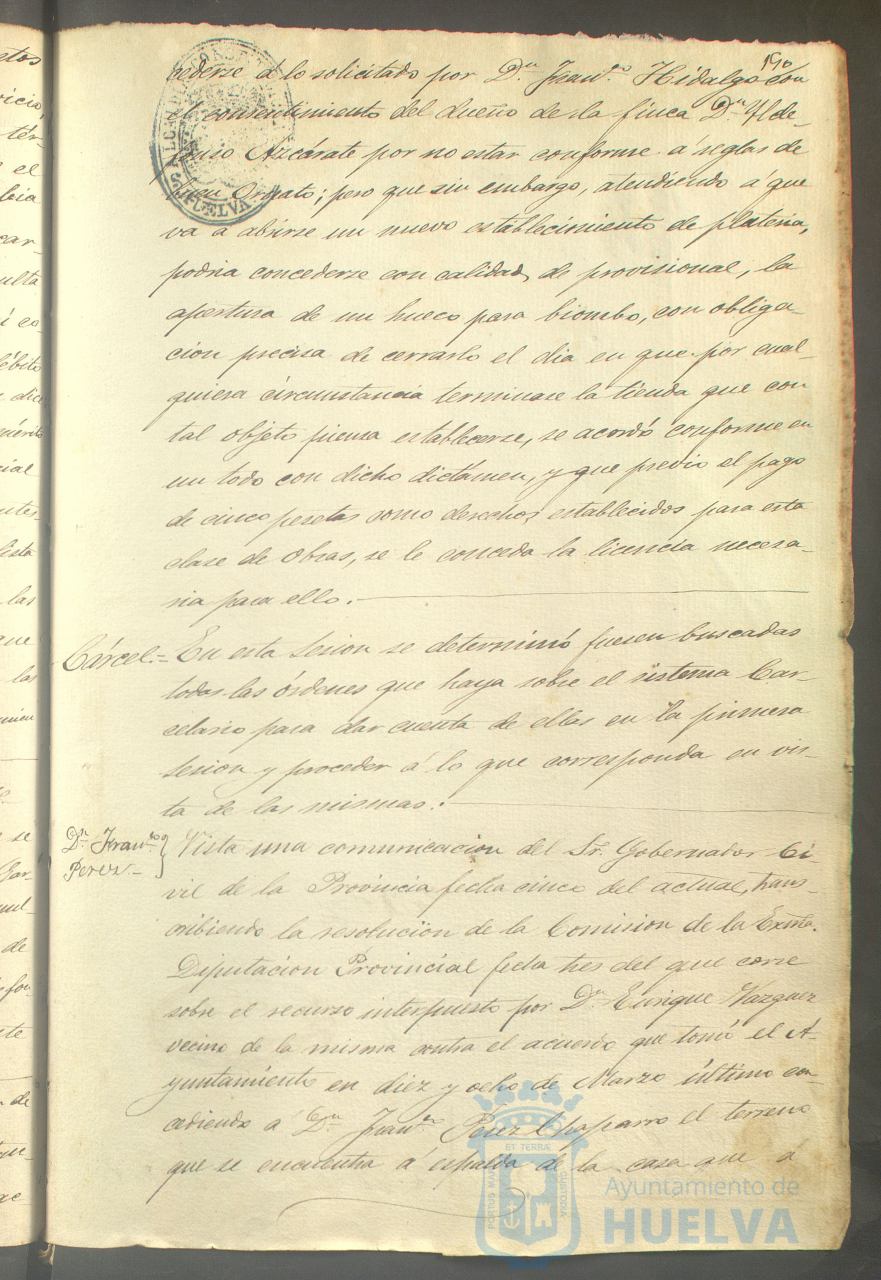 190
cederse á lo solicitado por Dn. Franco. Hidalgo con
el consentimiento del dueño de la finca Dn. Ylde-
fonso Azcárate por no estar conforme á reglas de
buen Ornato; pero que sin embargo, atendiendo á que
va á abrirse un nuevo establecimiento de plateria,
podria concederse con calidad de provisional, la
apertura de un hueco para biombo, con obliga-
cion precisa de cerrarlo el dia en que por cual-
quiera circunstancia terminase la tienda que con
tal objeto piensa establecerse, se acordó conforme en
un todo con dicho dictámen, y que previo el pago
de cinco pesetas como derechos establecidos para esta
clase de Obras, se le conceda la licencia necesa-
ria para ello.
Cárcel.= En esta sesion se determinó fuesen buscadas
todas las órdenes que haya sobre el sistema Car-
celario para dar cuenta de ellas en la primera
sesion y proceder á lo que corresponda en vis-
ta de las mismas.
Dn. Franco.
Perez.
Vista una comunicacion del Sr. Gobernador Ci-
vil de la Provincia fecha cinco del actual, trans-
cribiendo la resolucion de la Comision de la Exma.
Diputacion Provincial fecha tres del que corre
sobre el recurso interpuesto por Dn. Enrique Vazquez
vecino de la misma contra el acuerdo que tomó el A-
yuntamiento en diez y ocho de Marzo último con-
cediendo á Dn. Franco. Perez Chaparro el terreno
que se encuentra á espalda de la casa que á
HUELVA
PORTUS MARIS
ET TERRÆ
CUSTODIA
Ayuntamiento de
HUELVA